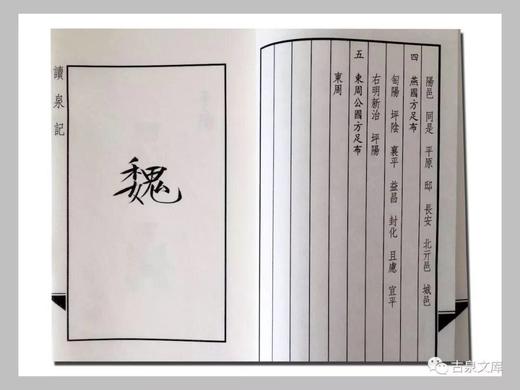 陽邑 同是 平原 邸 長安 北亓邑 城邑
四 燕國方足布
匋陽 坪陰 襄平 益昌 封化 且慮 宜平
右明新治 坪陽
五 東周公國方足布
東周
讀泉記
魏
古泉文库